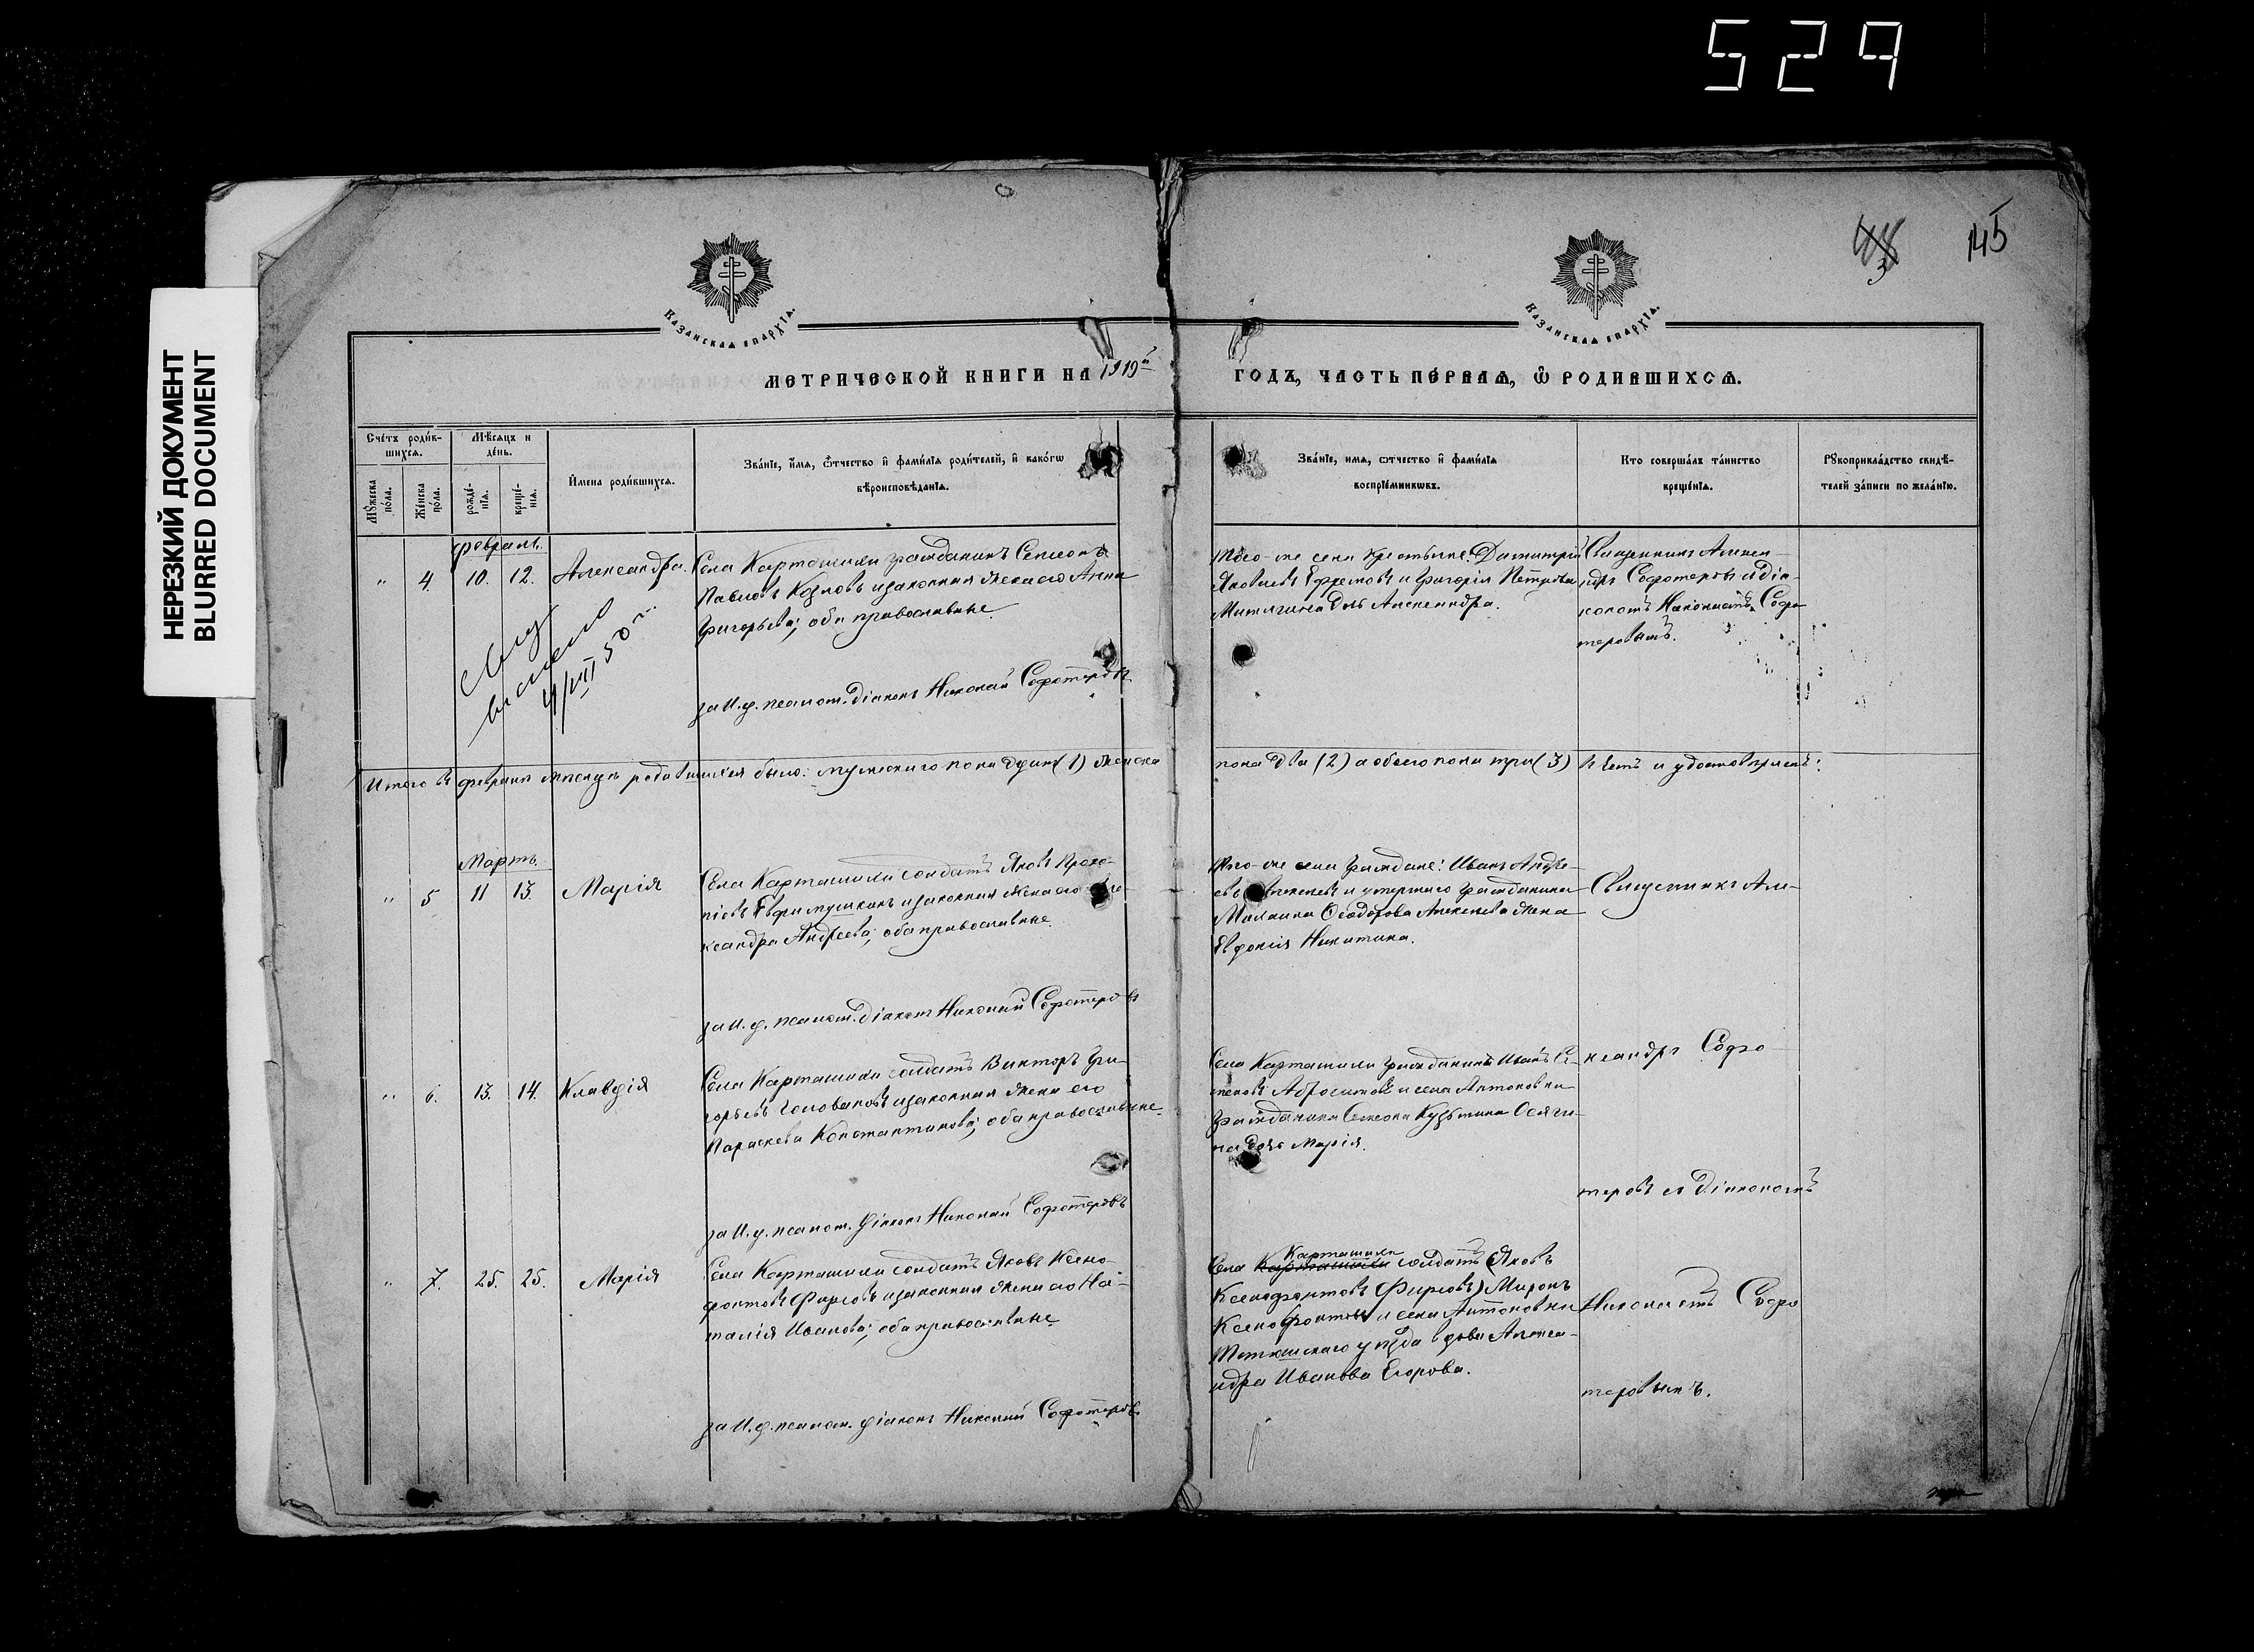 529
НЕРЕЗКИЙ ДОКУМЕНТ
BLURRED DOCUMENT
145
3
Казанская епархїѧ.
Казанская епархїѧ.
МЕТРИЧЕСКОЙ КНИГИ НА 1919й
ГОДЪ, ЧАСТЬ ПЕ́РВАѦ, Ѽ РОДИВШИХСѦ.
Сче́тъ роди́вшихсѧ.
Мѣ́сѧцъ и де́нь.
Мꙋ́жеска по́ла.
Же́нска по́ла.
рожде́нїѧ.
креще́нїѧ.
И҆мена роди́вшихсѧ.
Зва́нїе, и҆́мѧ, ѻ҆́тчество и҆ фами́лїѧ роди́телей, и҆ како́гѡ
вѣроисповѣ́данїѧ.
Зва́нїе, имѧ, ѻтчество и҆ фами́лїѧ
воспрїе́мникѡвъ.
Кто соверша́лъ та́инство
креще́нїѧ.
Рꙋкоприкла́дство свидѣ́-
телей за́писи по жела́нїю.
Февраль.
" 4. 10. 12. Александра.
Села Карташихи гражданинъ Семеонъ
Павловъ Козловъ и законная жена его Анна
Григорьева; оба православные.
за И. д. псалом. Діаконъ Николай Софотеровъ
4/VII 50 г.
Того-же села крестьяне: Димитрій
Яковлевъ Ефремовъ и Григорія Петрова
дочь Александра.
Священникъ Алексан-
дръ Софотеровъ и діа-
кономъ Николаемъ Софо
теровымъ.
Итого въ февралѣ мѣсяцѣ родившихся было: мужескаго пола одинъ (1) женска
пола два (2) а обоего пола три (3)
Мартъ.
" 5 11 13. Марія
Села Карташихи солдатъ Яковъ Проко-
піевъ Евфимушкинъ и законная жена его Але
ксандра Андреева; оба православные.
за И. д. псалом. Діаконъ Николай Софотеровъ
Того-же села граждане: Иванъ Андре-
евъ Алексеевъ и умершаго гражданина
Ѳеодорова Алексеева жена
Евдокія Никитина.
Священникъ Але-
" 6. 13. 14. Клавдія
Села Карташихи солдатъ Викторъ Гри-
горьевъ Головановъ и законная жена его
Параскева Константинова; оба православные.
за И. д. псалом. Діаконъ Николай Софотеровъ
Села Карташихи гражданинъ Иванъ Се-
меновъ Абросимовъ и села Антоновки
гражданина Семеона Кузьмина Осяги-
на дочь Марія.
ксандръ Софо-
теровъ съ Діакономъ
" 7. 25. 25. Марія
Села Карташихи солдатъ Яковъ Ксено-
фонтовъ Фирсовъ и законная жена его На-
талія Иванова; оба православные
за И. д. псалом. Діаконъ Николай Софотеровъ
Карташихи
Села Карташихи солдатъ (Яковъ
Ксенофонтовъ Фирсовъ) Миронъ
Ксенофонтовъ и села Антоновки
Тетюшскаго уѣзда вдова Алекса-
ндра Иванова Егорова.
Николаемъ Софо
теровымъ.